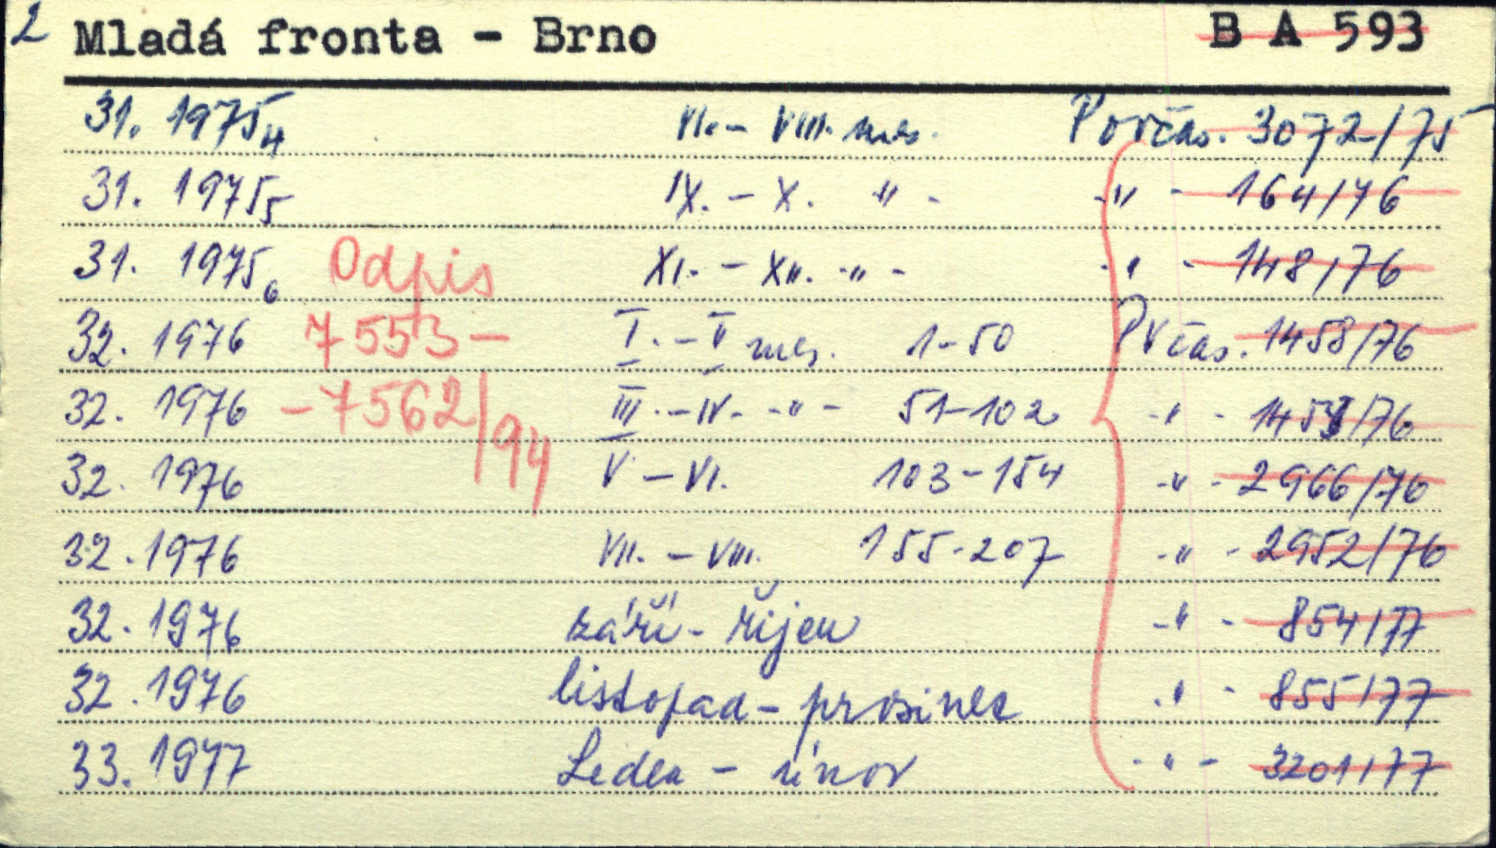 2 Mladá fronta - Brno B A 593
31. 1975 4 VII. - VIII. mes. Povčas. 3072/75
31. 1975 5 IX. - X. " - - " - 164/76
31. 1975 6 Odpis XI. - XII. - " - - " - 148/76
32. 1976 7553 - I. - II mes. 1-50 PVčas. 1458/76
32. 1976 - 7562/94 III. - IV. - " - 51-102 - " - 1459/76
32. 1976 V - VI. 103-154 - " - 2966/76
32. 1976 VII. - VIII. 155-207 - " - 2952/76
32. 1976 září - říjen - " - 854/77
32. 1976 listopad - prosinec - " - 855/77
33. 1977 Leden - únor - " - 3201/77